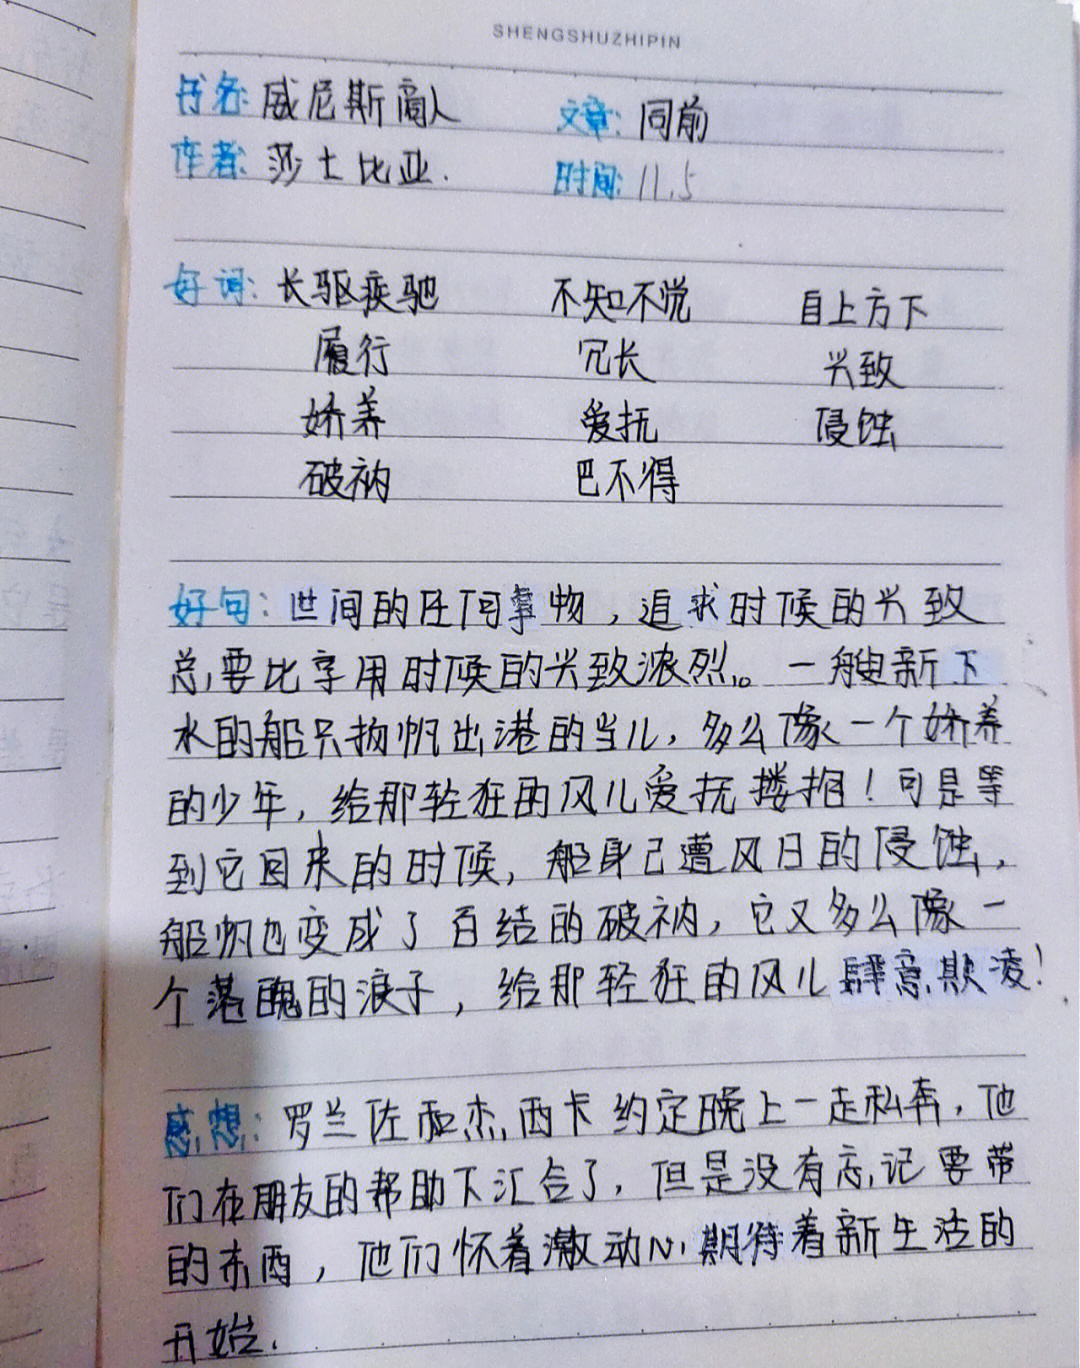 SHENGSHUZHIPIN
书名: 威尼斯商人 文章: 同前
作者: 莎士比亚. 时间: 11.5
好词: 长驱疾驰 不知不觉 自上方下
履行 冗长 兴致
娇养 爱抚 侵蚀
破衲 巴不得
好句: 世间的任何事物，追求时候的兴致
总要比享用时候的兴致浓烈。一艘新下
水的船只扬帆出港的当儿，多么像一个娇养
的少年，给那轻狂的风儿爱抚搂抱！可是等
到它回来的时候，船身已遭风日的侵蚀，
船帆也变成了百结的破衲，它又多么像一
个落魄的浪子，给那轻狂的风儿肆意欺凌！
感想: 罗兰佐和杰西卡约定晚上一走私奔，他
们在朋友的帮助下汇合了，但是没有忘记要带
的东西，他们怀着激动心期待着新生活的
开始.